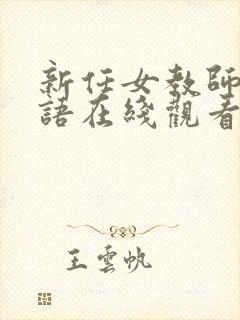 新任女教師
語在綫觀看
王雲帆